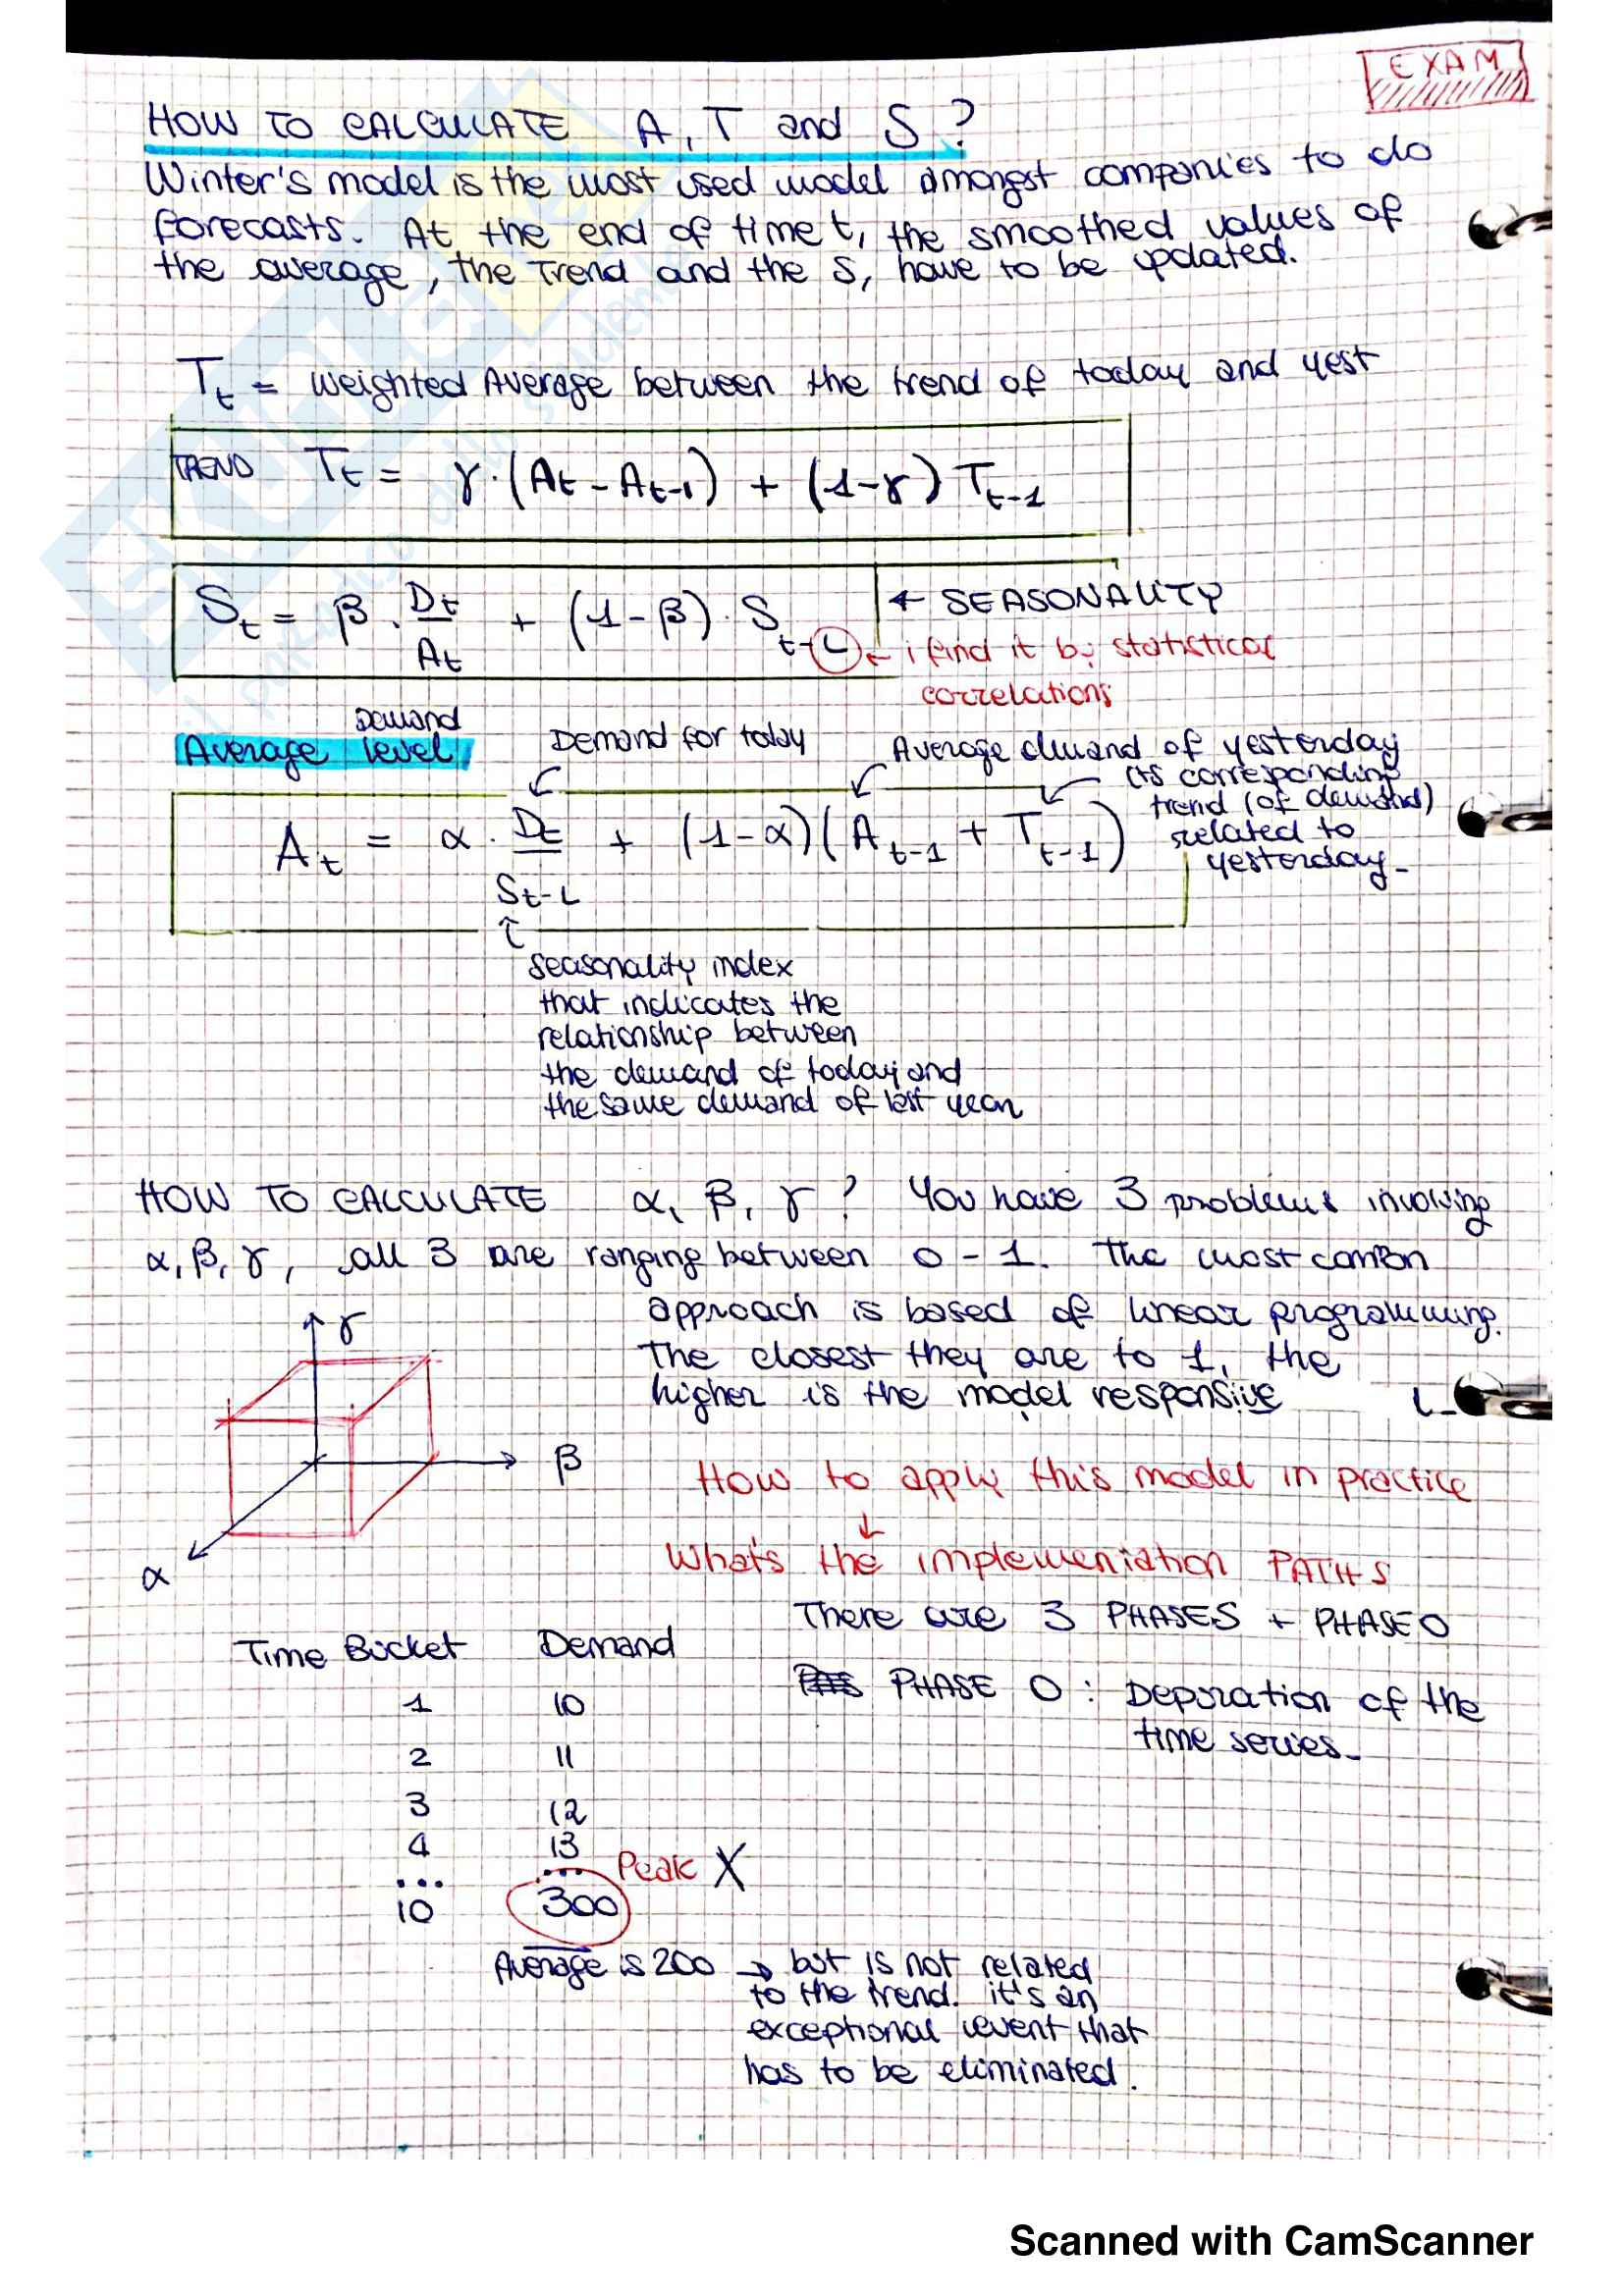 EXAM
HOW TO CALCULATE A, T and S?
Winter's model is the most used model amongst companies to do
forecasts. At the end of time t, the smoothed values of
the average, the Trend and the S, have to be updated.
Tt = weighted Average between the trend of today and yest
TREND Tt = γ·(At - At-1) + (1-γ) Tt-1
St = β · Dt/At + (1-β) · St-L ← SEASONALITY
← i find it by statistical
correlations
Demand
Average level
Demand for today
Average demand of yesterday
its corresponding
trend (of demand)
related to
yesterday-
At = α · Dt/St-L + (1-α)(At-1 + Tt-1)
seasonality index
that indicates the
relationship between
the demand of today and
the same demand of last year
HOW TO CALCULATE α, β, γ? You have 3 problems involving
α, β, γ, all 3 are ranging between 0 - 1. The most common
approach is based of linear programming.
The closest they are to 1, the
higher is the model responsive
γ
β
α
How to apply this model in practice
↓
What's the implementation PATHS
There are 3 PHASES + PHASE 0
PHASE 0: Depuration of the
time series-
Time Bucket Demand
1 10
2 11
3 12
4 13
... ...
Peak X
10 300
Average is 200 → but is not related
to the trend. it's an
exceptional event that
has to be eliminated.
Scanned with CamScanner